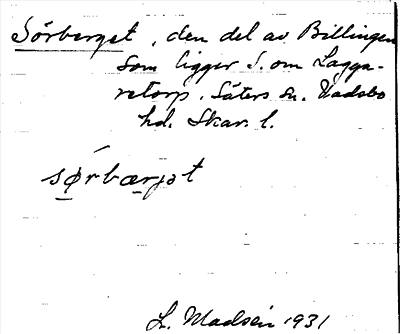 Sörberget, den del av Billingen
som ligger S. om Lagga-
retorp. Säters sn. Vadsbo
hd. Skar. l.
sǿrbærjət
L. Madsén 1931